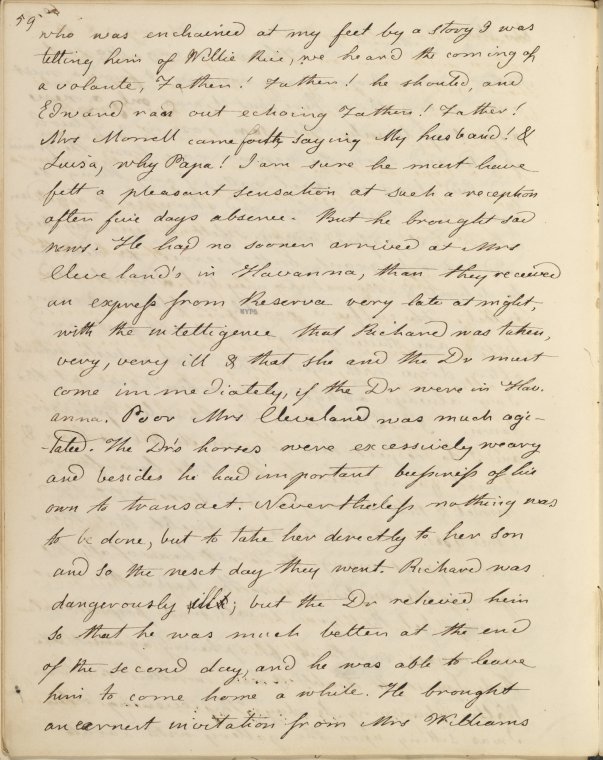 59
who was enchained at my feet by a story I was
telling him of Willie Rice, we heard the coming of
a volante, Father! Father! he shouted, and
Edward ran out echoing Father! Father!
Mrs Morrell came forth saying My husband! &
Luisa, why Papa! I am sure he must have
felt a pleasant sensation at such a reception
after five days absence. But he brought sad
news. He had no sooner arrived at Mrs
Cleveland's in Havanna, than they received
an express from Reserva very late at night,
NYPL
with the intelligence that Richard was taken,
very, very ill & that she and the Dr must
come immediately, if the Dr were in Hav.
anna. Poor Mrs Cleveland was much agi-
tated. The Dr's horses were excessively weary
and besides he had important bussiness of his
own to transact. Nevertheless nothing was
to be done, but to take her directly to her son
and so the next day they went. Richard was
dangerously ill; but the Dr relieved him
so that he was much better at the end
of the second day, and he was able to leave
him to come home a while. He brought
an earnest invitation from Mrs Williams